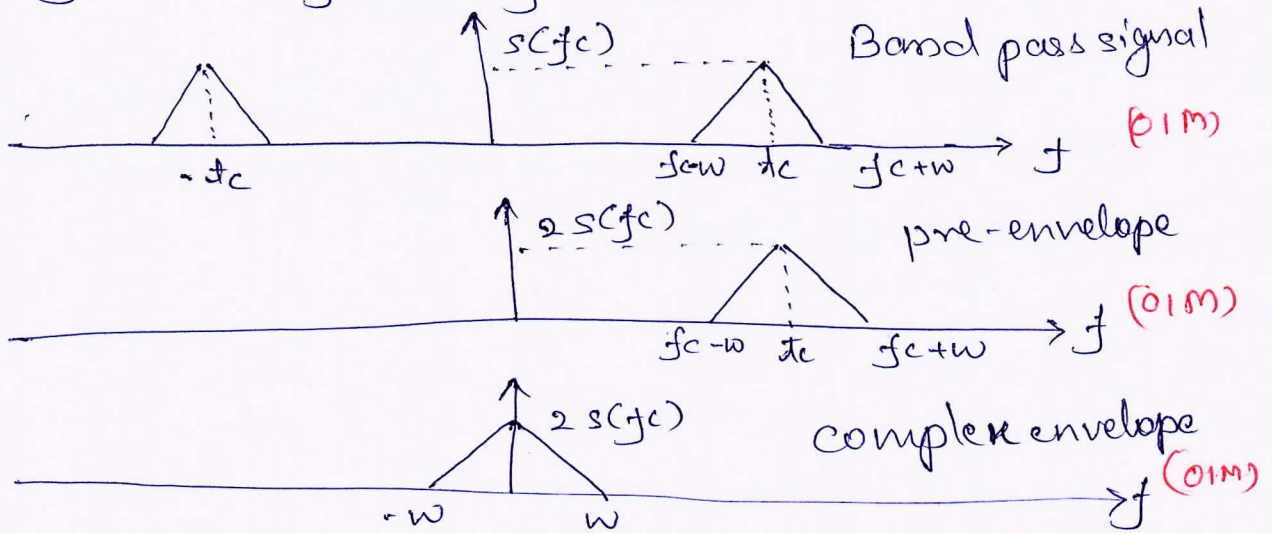 S(fc) Band pass signal
(01M)
-fc fc-w fc fc+w f
2 S(fc) pre-envelope
(01M)
fc-w fc fc+w f
2 S(fc) complex envelope
(01M)
-w w f